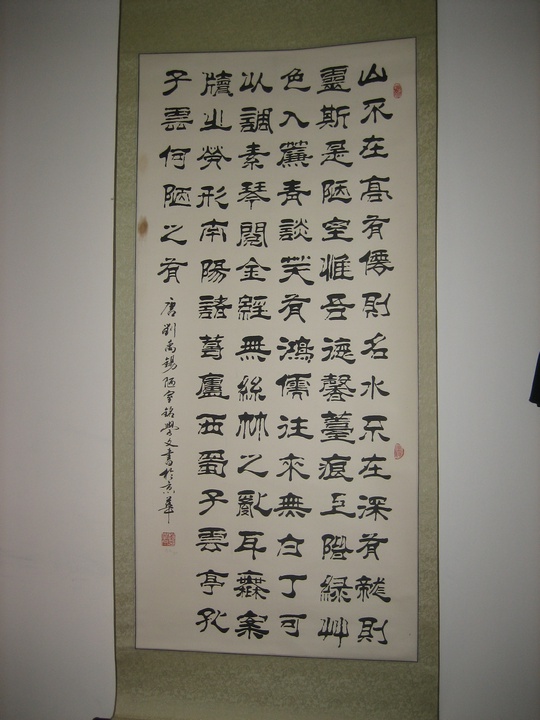 山不在高有僊則名水不在深有龍則
靈斯是陋室惟吾德馨薹痕上階綠艸
色入薕青談笑有鴻儒往來無白丁可
以調素琴閱金經無絲竹之亂耳無案
牘之勞形南陽諸葛廬西蜀子雲亭孔
子雲何陋之有
唐劉禹錫陋室銘學文書於京華